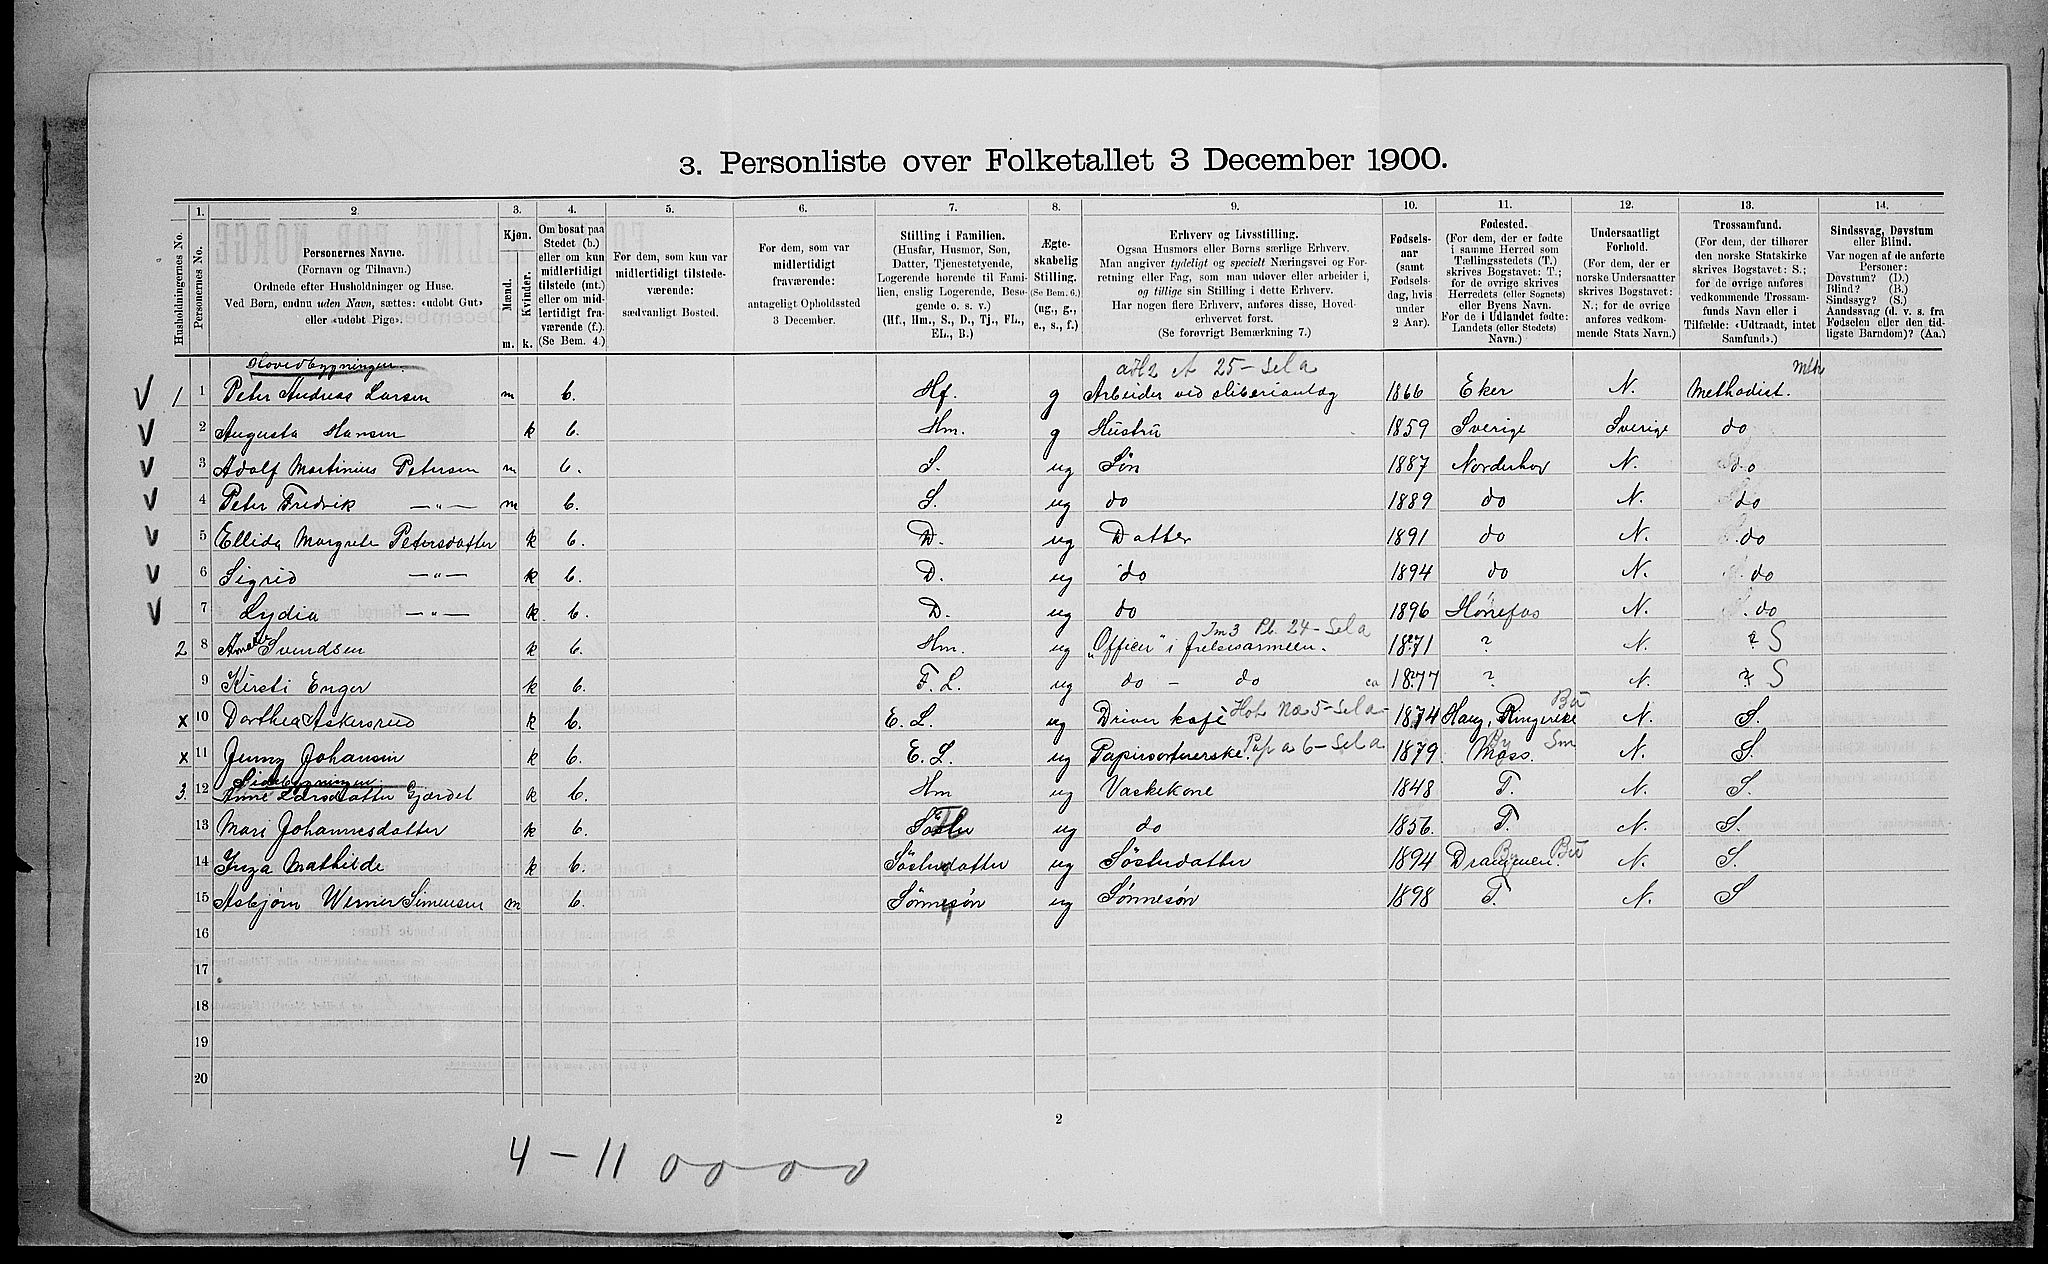 3. Personliste over Folketallet 3 December 1900.
1. 2. 3. 4. 5. 6. 7. 8. 9. 10. 11. 12. 13. 14.
Husholdningernes No.
Personernes No.
Personernes Navne.
(Fornavn og Tilnavn.)
Ordnede efter Husholdninger og Huse.
Ved Børn, endnu uden Navn, sættes: «udøbt Gut»
eller «udøbt Pige».
Kjøn.
Mænd.
Kvinder.
m. k.
Om bosat paa
Stedet (b.)
eller om kun
midlertidigt
tilstede (mt.)
eller om mid-
lertidigt fra-
værende (f.).
(Se Bem. 4.)
For dem, som kun var
midlertidigt tilstede-
værende:
sædvanligt Bosted.
For dem, som var
midlertidigt
fraværende:
antageligt Opholdssted
3 December.
Stilling i Familien.
(Husfar, Husmor, Søn,
Datter, Tjenestetyende,
Logerende hørende til Fami-
lien, enslig Logerende, Besø-
gende o. s. v.)
(Hf., Hm., S., D., Tj., FL.,
EL., B.)
Ægte-
skabelig
Stilling.
(Se Bem. 6.)
(ug., g.,
e., s., f.)
Erhverv og Livsstilling.
Ogsaa Husmors eller Børns særlige Erhverv.
Man angiver tydeligt og specielt Næringsvei og For-
retning eller Fag, som man udøver eller arbeider i,
og tillige sin Stilling i dette Erhverv.
Har nogen flere Erhverv, anføres disse, Hoved-
erhvervet først.
(Se forøvrigt Bemærkning 7.)
Fødsels-
aar
(samt
Fødsels-
dag, hvis
under
2 Aar).
Fødested.
(For dem, der er fødte
i samme Herred som
Tællingsstedets (T.)
skrives Bogstavet: T.;
for de øvrige skrives
Herredets (eller Sognets)
eller Byens Navn.
For de i Udlandet fødte:
Landets (eller Stedets)
Navn.)
Undersaatligt
Forhold.
(For dem, der er
norske Undersaatter
skrives Bogstavet:
N.; for de øvrige
anføres vedkom-
mende Stats Navn.)
Trossamfund.
(For dem, der tilhører
den norske Statskirke
skrives Bogstavet: S.;
for de øvrige anføres
vedkommende Trossam-
funds Navn eller i
Tilfælde: «Udtraadt, intet
Samfund».)
Sindssvag, Døvstum
eller Blind.
Var nogen af de anførte
Personer:
Døvstum? (D.)
Blind? (B.)
Sindssyg? (S.)
Aandssvag (d. v. s. fra
Fødselen eller den tid-
ligste Barndom)? (Aa.)
Hovedbygningen. 25 - Sela Mth
1 1 Peter Andreas Larsen m b. Hf. g Arbeider ved sliberianlæg 1866 Eker N. Methodist.
2 Augusta Hansen k b. Hm. g Hustru 1859 Sverige Sverige do
3 Adolf Martinius Petersen m b. S. ug Søn 1887 Norderhov N. do
4 Peter Fredrik —"— m b. S. ug do 1889 do N. do
5 Ellida Margrete Petersdatter k b. D. ug Datter 1891 do N. do
6 Sigrid —"— k b. D. ug do 1894 do N. do
7 Lydia —"— k b. D. ug do 1896 Hönefos N. do
24 - Sela
2 8 Svendsen k b. Hm. ug "Officer" i frelsesarmeen. 1871 ? N. ? S
9 Kirsti Enger k b. F. L. ug do - do ca 1877 ? N. ? S
x 10 Dorthea Askersrud k b. E. L. ug Driver kafé 5 - Sela 1874 Haug, Ringerike Bu N. S.
x 11 Jenny Johansen k b. E. L. ug Papirsortererske. Pap a 6 - Sela 1879 Moss. By Sm N. S.
Sidebygningen.
3. 12 Anne Larsdatter Gjærdet k b. Hm ug Vaskekone 1848 T. N. S.
13 Mari Johannesdatter k b. Söster ug do 1856. T. N. S.
14 Inga Mathilde k b. Sösterdatter ug Sösterdatter 1894 Drammen. By Bu N. S.
15 Asbjørn Werner Simensen m b. Sönnesøn ug Sönnesøn 1898 T. N. S
16
17
18
19
20
2
4 - 11 0 0 0 0